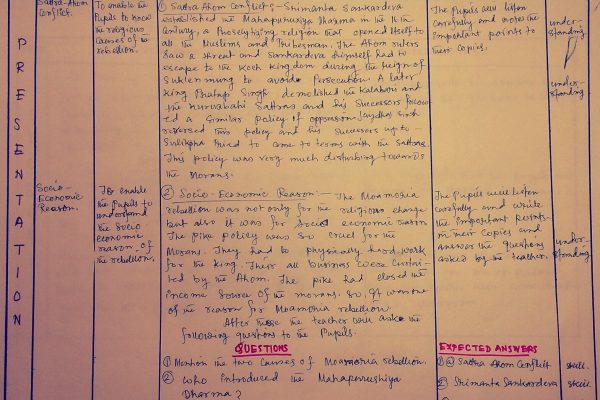 PRESENTATION
Satra-Ahom
Conflict.
To enable the
Pupils to know
the religious
Causes of the
rebellion.
① Satra Ahom Conflict:- Srimanta Sankardeva
established the Mahapurusiya Dharma in the 16th
Century, a Proselytising religion that opened itself to
all the Muslims and Tribesman. The Ahom rulers
Saw a threat and Sankardeva himself had to
escape to the Koch Kingdom during the Reign of
Suklenmung to avoid Persecution. A later
King Pratap Singh demolished the Kalabari and
the Kuruabahi Sattras and his Successors follow
ed a Similar policy of oppression
reversed this policy and his Successors up to
Sulikpha tried to come to terms with the Sattras.
This policy was very much disturbing towards
the Morans.
The Pupils will listen
Carefully and note the
important points to
their Copies.
under-
standing
under-
standing
Socio-
Economic
Reason.
To enable
the Pupils to
understand
the Socio
economic
reason of
the rebellion.
② Socio-Economic Reason:- The Moamoria
rebellion was not only for the religious change
but also it was for Social economic reason
The pike policy was so cruel for the
Morans. They had to physically hard work
for the King. Their all business were Curtai-
led by the Ahom. The pike had closed the
income Source of the morans. So, it was one
of the reason for Moamoria rebellion.
After these the teacher will ask the
following questions to the Pupils.
The Pupils will listen
Carefully and write
the important points
in their Copies and
answer the questions
asked by the teacher.
under-
standing
QUESTIONS
① Mention the two Causes of Moamoria rebellion.
② Who introduced the Mahapurushiya
Dharma?
EXPECTED ANSWERS
① ⓐ Satra Ahom Conflict
② Srimanta Sankardeva
skill.
skill